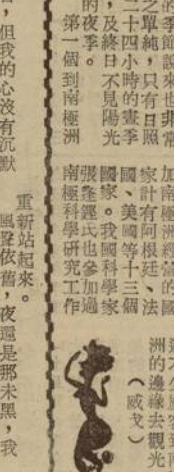 的季節說來也非常
之單純，只有日照
二十四小時的晝季
，及終日不見陽光
的夜季。
第一個到南極洲
加南極洲
家計有阿根廷、法
國、美國等十三個
國家。我國科學家
張逢鏗氏也參加過
南極科學研究工作
洲的邊緣去觀光
（威戈）
，但我的心沒有沉默
重新站起來。
風聲依舊，夜還是那末黑，我